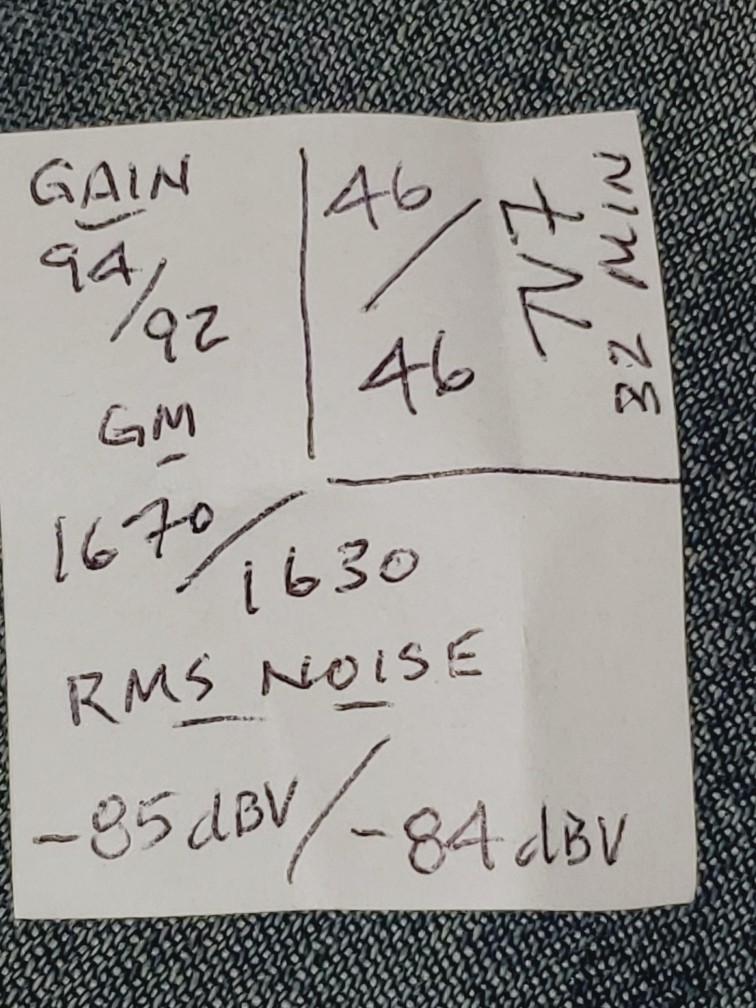 GAIN
94/92
GM
1670/1630
46/46
TV7
32 MIN
RMS NOISE
-85dBV/-84dBV